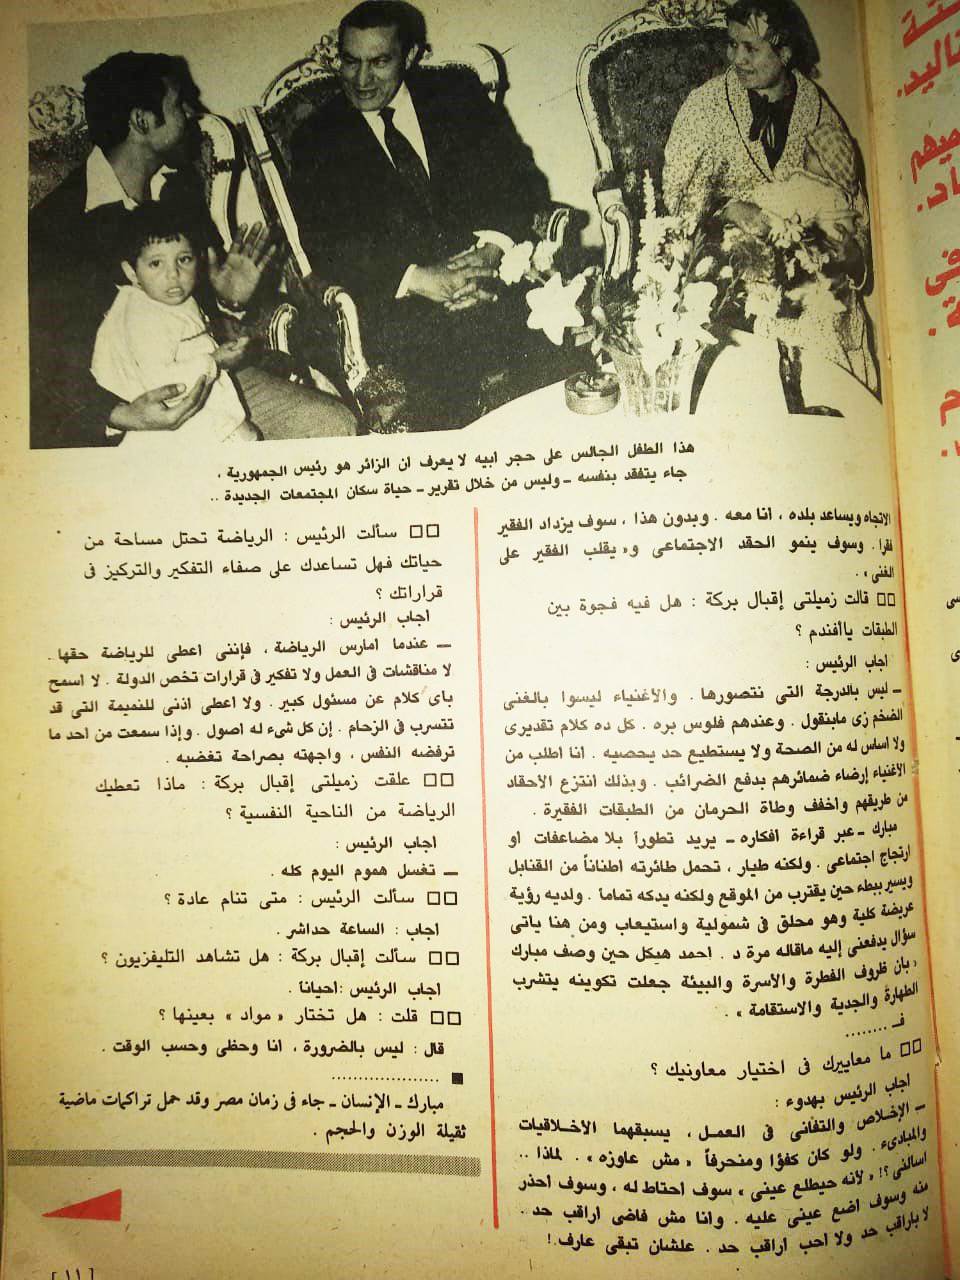 هذا الطفل الجالس على حجر أبيه لا يعرف أن الزائر هو رئيس الجمهورية ،
جاء يتفقد بنفسه ـ وليس من خلال تقرير ـ حياة سكان المجتمعات الجديدة ..
الاتجاه ويساعد بلده ، أنا معه . وبدون هذا ، سوف يزداد الفقير
فقرا . وسوف ينمو الحقد الاجتماعى و « يقلب الفقير على
الغنى » .
□□ قالت زميلتى إقبال بركة : هل فيه فجوة بين
الطبقات ياأفندم ؟
أجاب الرئيس :
ـ ليس بالدرجة التى نتصورها . والأغنياء ليسوا بالغنى
الضخم زى مابنقول . وعندهم فلوس بره . كل ده كلام تقديرى
ولا أساس له من الصحة ولا يستطيع حد يحصيه . أنا أطلب من
الأغنياء إرضاء ضمائرهم بدفع الضرائب . وبذلك انتزع الأحقاد
من طريقهم وأخفف وطأة الحرمان من الطبقات الفقيرة .
مبارك ـ عبر قراءة أفكاره ـ يريد تطوراً بلا مضاعفات أو
ارتجاج اجتماعى . ولكنه طيار ، تحمل طائرته أطناناً من القنابل
ويسير ببطء حين يقترب من الموقع ولكنه يدكه تماماً . ولديه رؤية
عريضة كلية وهو محلق فى شمولية واستيعاب ومن هنا يأتى
سؤال يدفعنى إليه ماقاله مرة د . أحمد هيكل حين وصف مبارك
« بأن ظروف الفطرة والأسرة والبيئة جعلت تكوينه يتشرب
الطهارة والجدية والاستقامة » .
فـ ........
□□ ما معاييرك فى اختيار معاونيك ؟
أجاب الرئيس بهدوء :
ـ الإخلاص والتفانى فى العمل ، يسبقهما الأخلاقيات
والمبادىء . ولو كان كفؤا ومنحرفاً « مش عاوزه » . لماذا ..
اسألنى ؟! « لأنه حيطلع عينى » سوف احتاط له ، وسوف أحذر
منه وسوف أضع عينى عليه . وأنا مش فاضى أراقب حد .
لا باراقب حد ولا أحب أراقب حد . علشان تبقى عارف !
□□ سألت الرئيس : الرياضة تحتل مساحة من
حياتك فهل تساعدك على صفاء التفكير والتركيز فى
قراراتك ؟
أجاب الرئيس :
ـ عندما أمارس الرياضة ، فإننى أعطى للرياضة حقها .
لا مناقشات فى العمل ولا تفكير فى قرارات تخص الدولة . لا أسمح
بأى كلام عن مسئول كبير . ولا أعطى أذنى للنميمة التى قد
تتسرب فى الزحام . إن كل شىء له أصول . وإذا سمعت من أحد ما
ترفضه النفس ، واجهته بصراحة تغضبه .
□□ علقت زميلتى إقبال بركة : ماذا تعطيك
الرياضة من الناحية النفسية ؟
أجاب الرئيس :
ـ تغسل هموم اليوم كله .
□□ سألت الرئيس : متى تنام عادة ؟
أجاب : الساعة حداشر .
□□ سألت إقبال بركة : هل تشاهد التليفزيون ؟
أجاب الرئيس : أحيانا .
□□ قلت : هل تختار « مواد » بعينها ؟
قال : ليس بالضرورة ، أنا وحظى وحسب الوقت .
■ ...................
مبارك ـ الإنسان ـ جاء فى زمان مصر وقد حمل تراكمات ماضية
ثقيلة الوزن والحجم .
[ ١١ ]